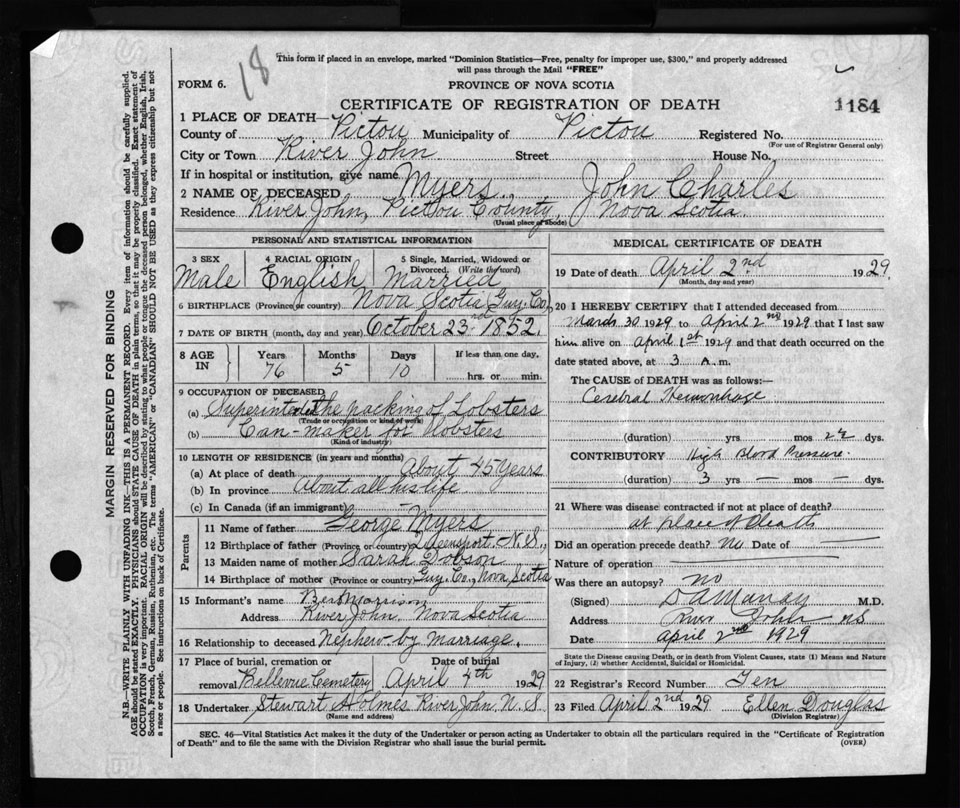 This form if placed in an envelope, marked "Dominion Statistics—Free, penalty for improper use, $300," and properly addressed
will pass through the Mail "FREE"
18
FORM 6.
PROVINCE OF NOVA SCOTIA
CERTIFICATE OF REGISTRATION OF DEATH
1184
1 PLACE OF DEATH—
County of Pictou Municipality of Pictou Registered No.
(For use of Registrar General only)
City or Town River John Street House No.
If in hospital or institution, give name
2 NAME OF DECEASED Myers John Charles
Residence River John, Pictou County, Nova Scotia.
(Usual place of abode)
PERSONAL AND STATISTICAL INFORMATION
3 SEX 4 RACIAL ORIGIN 5 Single, Married, Widowed or Divorced. (Write the word)
Male English Married
6 BIRTHPLACE (Province or country) Nova Scotia Guy. Co.
7 DATE OF BIRTH (month, day and year) October 23rd 1852.
8 AGE IN Years Months Days If less than one day.
76 5 10 hrs. or min.
9 OCCUPATION OF DECEASED
(a) Superintended the packing of Lobsters
(Trade or occupation or kind of work)
(b) Can-maker for lobsters
(Kind of industry)
10 LENGTH OF RESIDENCE (in years and months)
(a) At place of death About 45 years
(b) In province About all his life
(c) In Canada (if an immigrant)
Parents
11 Name of father George Myers
12 Birthplace of father (Province or country) Queensport N.S.,
13 Maiden name of mother Sarah Dobson
14 Birthplace of mother (Province or country) Guy. Co., Nova Scotia
15 Informant's name Bert Morrison
Address River John, Nova Scotia
16 Relationship to deceased Nephew-by marriage.
17 Place of burial, cremation or removal Bellevue Cemetery Date of burial April 4th 1929
18 Undertaker Stewart Holmes River John, N. S.
(Name and address)
MEDICAL CERTIFICATE OF DEATH
19 Date of death April 2nd 1929.
(Month, day and year)
20 I HEREBY CERTIFY that I attended deceased from
March 30 1929 to April 2nd 1929 that I last saw
him alive on April 1st 1929 and that death occurred on the
date stated above, at 3 A.m.
The CAUSE of DEATH was as follows:—
Cerebral Hemorrhage
(duration) yrs mos 2½ dys.
CONTRIBUTORY High Blood Pressure.
(duration) 3 yrs — mos — dys.
21 Where was disease contracted if not at place of death?
at place of death
Did an operation precede death? No Date of —
Nature of operation
Was there an autopsy? no
(Signed) M.D.
Address River John NS
Date April 2nd 1929
State the Disease causing Death, or in death from Violent Causes, state (1) Means and Nature
of Injury, (2) whether Accidental, Suicidal or Homicidal.
22 Registrar's Record Number Ten
23 Filed April 2nd 1929 Ellen Douglas
(Division Registrar)
SEC. 46—Vital Statistics Act makes it the duty of the Undertaker or person acting as Undertaker to obtain all the particulars required in the "Certificate of Registration
of Death" and to file the same with the Division Registrar who shall issue the burial permit.
(OVER)
MARGIN RESERVED FOR BINDING
N.B.—WRITE PLAINLY WITH UNFADING INK—THIS IS A PERMANENT RECORD. Every item of information should be carefully supplied.
AGE should be stated EXACTLY. PHYSICIANS should STATE CAUSE OF DEATH in plain terms, so that it may be properly classified. Exact statement of
OCCUPATION is very important. RACIAL ORIGIN will be described by stating to what people or tongue the deceased person belonged, whether English, Irish,
Scotch, French, German, Russian, Ruthenian, etc. The terms "AMERICAN" or "CANADIAN" SHOULD NOT BE USED as they express citizenship but not
a race or people. See instructions on back of Certificate.